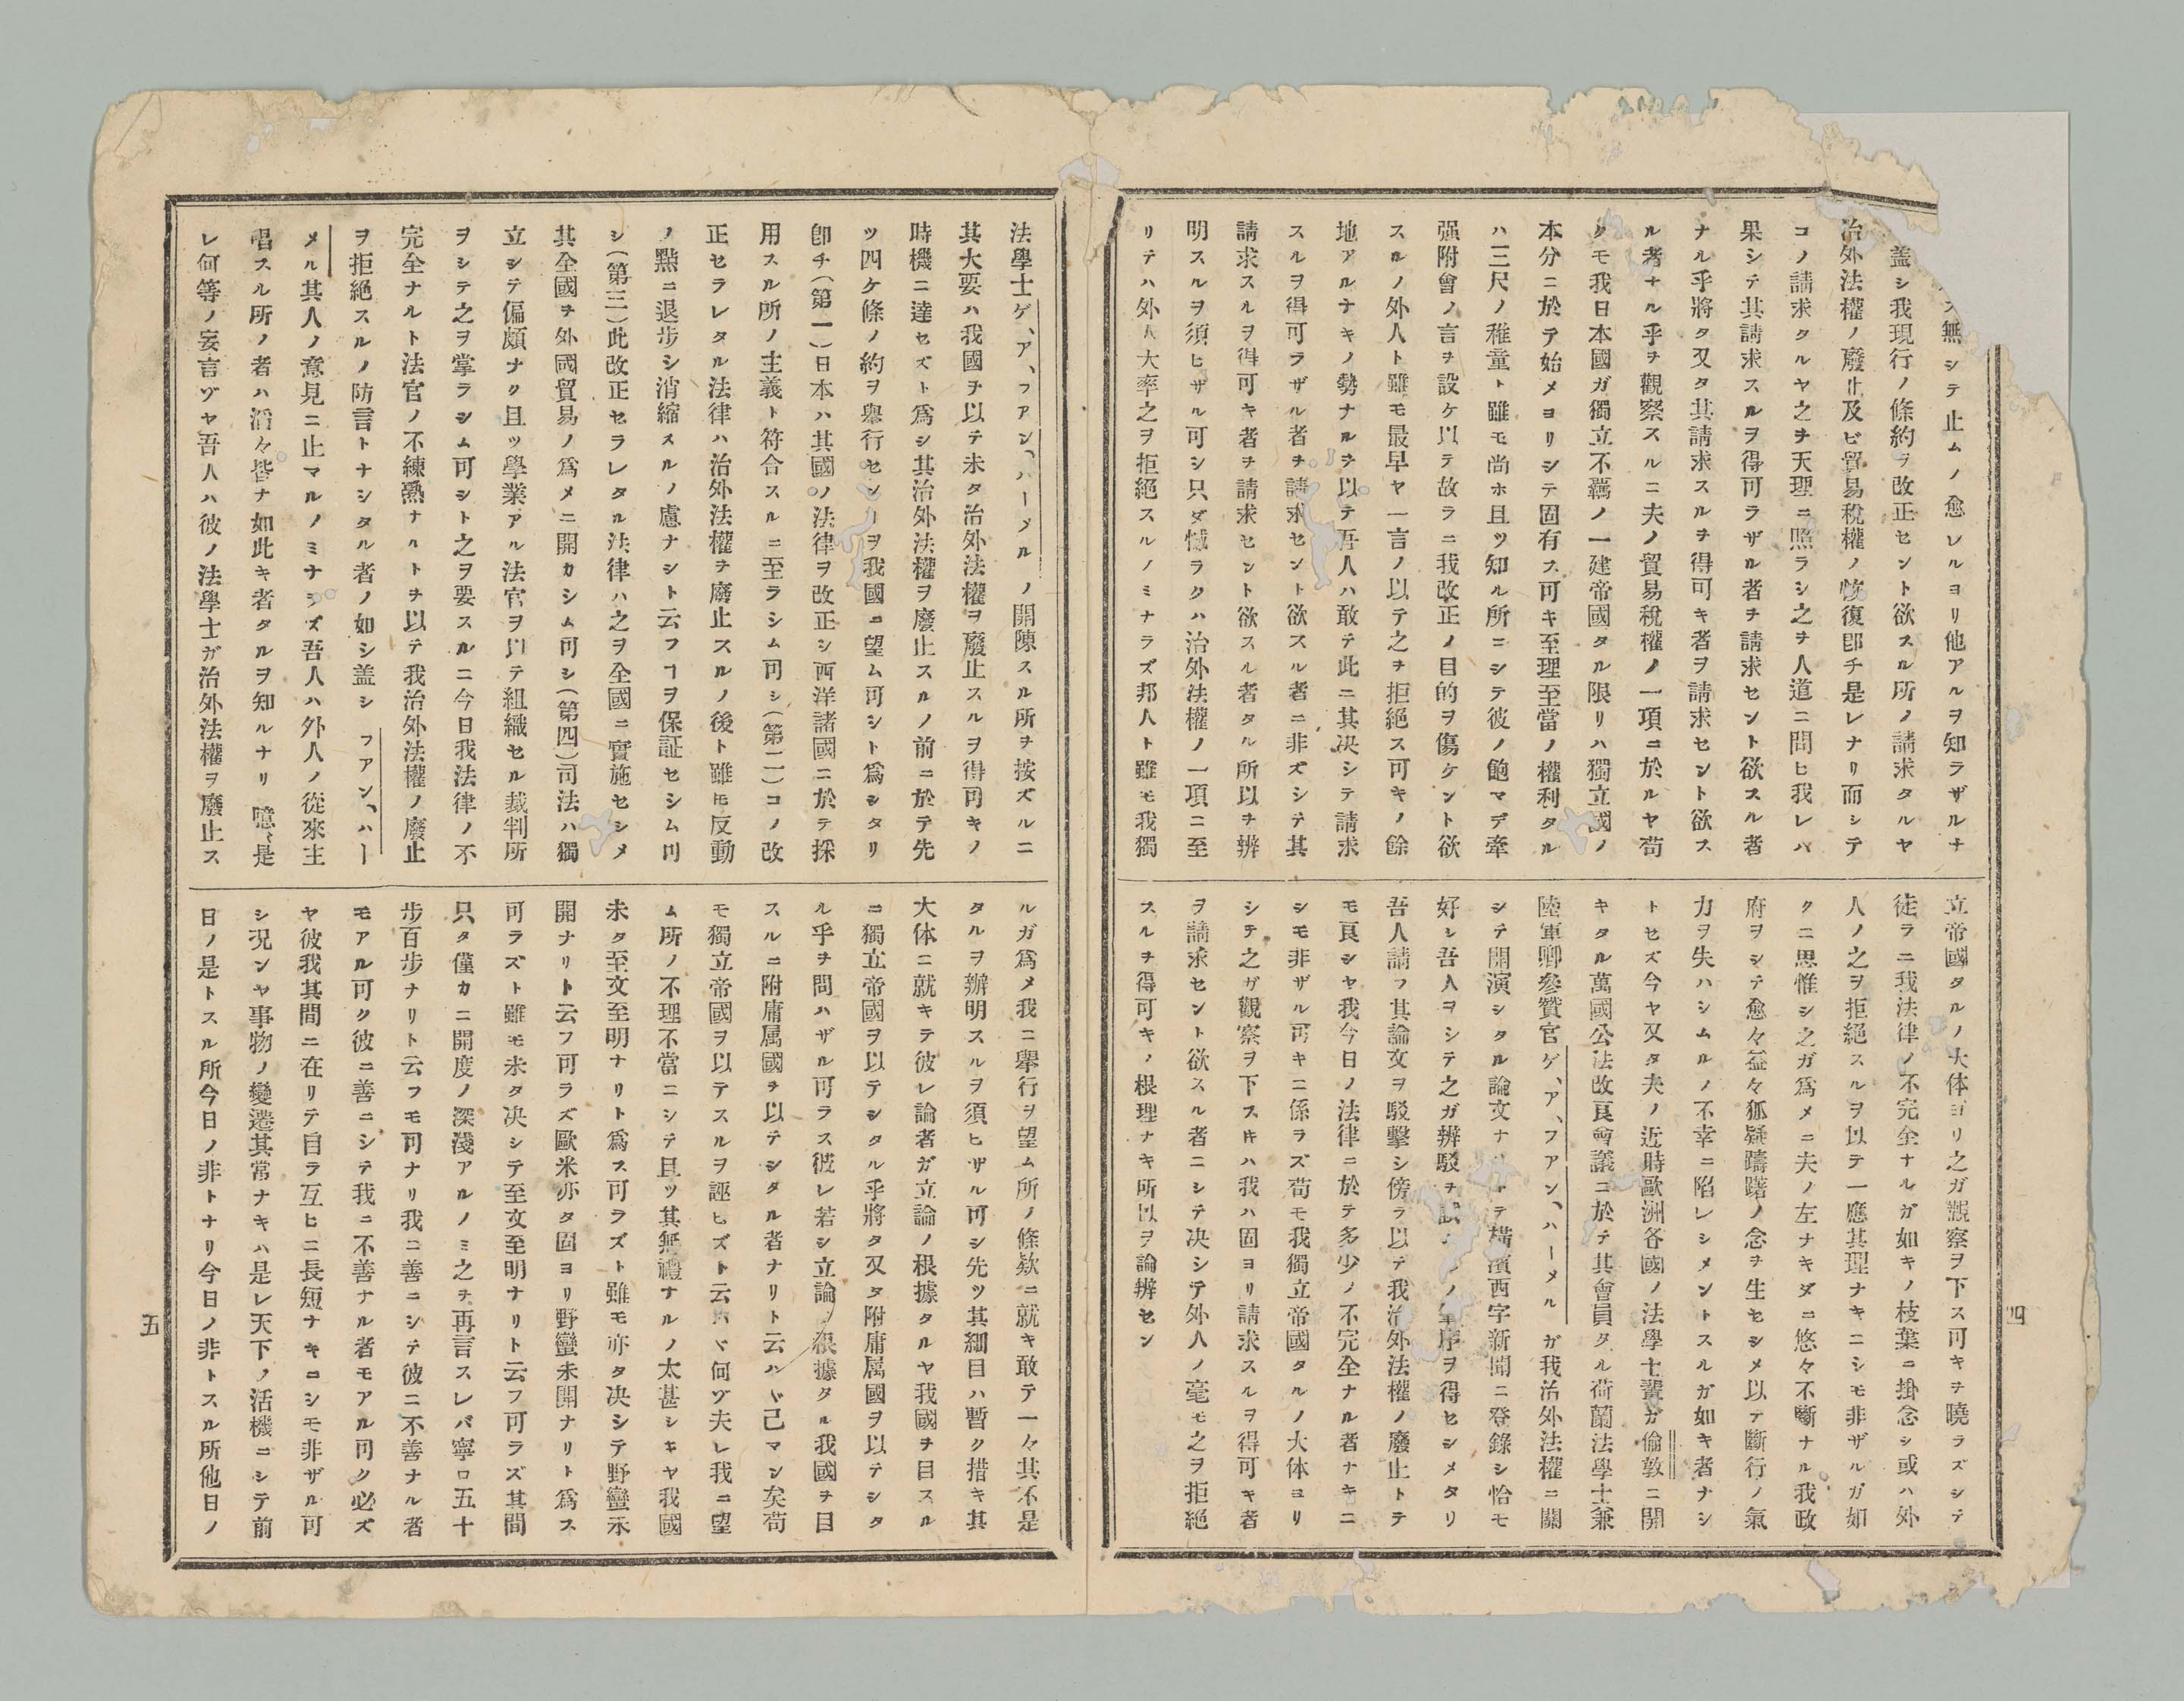 ス無シテ止ムノ愈レルヨリ他アルヲ知ラザルナ
盖シ我現行ノ條約ヲ改正セント欲スル所ノ請求タルヤ
治外法權ノ廢止及ビ貿易稅權ノ恢復卽チ是レナリ而シテ
コノ請求タルヤ之ヲ天理ニ照ラシ之ヲ人道ニ問ヒ我レハ
果シテ其請求スルヲ得可ラザル者ヲ請求セント欲スル者
ナル乎將タ又タ其請求スルヲ得可キ者ヲ請求セント欲ス
ル者ナル乎ヲ觀察スルニ夫ノ貿易稅權ノ一項ニ於ルヤ苟
クモ我日本國ガ獨立不羈ノ一建帝國タル限リハ獨立國ノ
本分ニ於テ始メヨリシテ固有ス可キ至理至當ノ權利タル
ハ三尺ノ稚童ト雖モ尚ホ且ツ知ル所ニシテ彼ノ飽マデ牽
强附會ノ言ヲ設ケ以テ故ラニ我改正ノ目的ヲ傷ケント欲
スルノ外人ト雖モ最早ヤ一言ノ以テ之ヲ拒絕ス可キノ餘
地アルナキノ勢ナルヲ以テ吾人ハ敢テ此ニ其决シテ請求
スルヲ得可ラザル者ヲ請求セント欲スル者ニ非ズシテ其
請求スルヲ得可キ者ヲ請求セント欲スル者タル所以ヲ辨
明スルヲ須ヒザル可シ只ダ憾ラクハ治外法權ノ一項ニ至
リテハ外人大率之ヲ拒絕スルノミナラズ邦人ト雖モ我獨
立帝國タルノ大体ヨリ之ガ觀察ヲ下ス可キヲ曉ラズシテ
徒ラニ我法律ノ不完全ナルガ如キノ枝葉ニ掛念シ或ハ外
人ノ之ヲ拒絕スルヲ以テ一應其理ナキニシモ非ザルガ如
クニ思惟シ之ガ爲メニ夫ノ左ナキダニ悠々不斷ナル我政
府ヲシテ愈々益々狐疑躊躇ノ念ヲ生セシメ以テ斷行ノ氣
力ヲ失ハシムルノ不幸ニ陷レシメントスルガ如キ者ナシ
トセズ今ヤ又タ夫ノ近時歐洲各國ノ法學士輩ガ倫敦ニ開
キタル萬國公法改良會議ニ於テ其會員タル荷蘭法學士兼
陸軍卿參贊官ゲ、ア、フアン、ハーメルガ我治外法權ニ關
シテ開演シタル論文ナリトテ橫濱西字新聞ニ登錄シ恰モ
好シ吾人ヲシテ之ガ辨駁ヲ試ノ序ヲ得セシメタリ
吾人請フ其論文ヲ駁擊シ傍ラ以テ我治外法權ノ廢止トテ
モ良シヤ我今日ノ法律ニ於テ多少ノ不完全ナル者ナキニ
シモ非ザル可キニ係ラズ苟モ我獨立帝國タルノ大体ヨリ
シテ之ガ觀察ヲ下ス𪜈ハ我ハ固ヨリ請求スルヲ得可キ者
ヲ請求セント欲スル者ニシテ决シテ外人ノ毫モ之ヲ拒絕
スルヲ得可キノ根理ナキ所以ヲ論辨セン
四
法學士ゲ、ア、フアン、ハーメルノ開陳スル所ヲ按ズルニ
其大要ハ我國ヲ以テ未タ治外法權ヲ廢止スルヲ得可キノ
時機ニ達セズト爲シ其治外法權ヲ廢止スルノ前ニ於テ先
ツ四ケ條ノ約ヲ擧行センヿヲ我國ニ望ム可シト爲シタリ
卽チ(第一)日本ハ其國ノ法律ヲ改正シ西洋諸國ニ於テ採
用スル所ノ主義ト符合スルニ至ラシム可シ(第二)コノ改
正セラレタル法律ハ治外法權ヲ廢止スルノ後ト雖𪜈反動
ノ點ニ退步シ消縮スルノ慮ナシト云フヿヲ保証セシム可
シ(第三)此改正セラレタル法律ハ之ヲ全國ニ實施セシメ
其全國ヲ外國貿易ノ爲メニ開カシム可シ(第四)司法ハ獨
立シテ偏頗ナク且ツ學業アル法官ヲ以テ組織セル裁判所
ヲシテ之ヲ掌ラシム可シト之ヲ要スルニ今日我法律ノ不
完全ナルト法官ノ不練熟ナルトヲ以テ我治外法權ノ廢止
ヲ拒絕スルノ防言トナシタル者ノ如シ盖シフアン、ハー
メル其人ノ意見ニ止マルノミナラズ吾人ハ外人ノ從來主
唱スル所ノ者ハ滔々皆ナ如此キ者タルヲ知ルナリ噫、是
レ何等ノ妄言ヅヤ吾人ハ彼ノ法學士ガ治外法權ヲ廢止ス
ルガ爲メ我ニ擧行ヲ望ム所ノ條欵ニ就キ敢テ一々其不是
タルヲ辦明スルヲ須ヒザル可シ先ツ其細目ハ暫ク措キ其
大体ニ就キテ彼レ論者ガ立論ノ根據タルヤ我國ヲ目スル
ニ獨立帝國ヲ以テシタル乎將タ又タ附庸属國ヲ以テシタ
ル乎ヲ問ハザル可ラス彼レ若シ立論ノ根據タル我國ヲ目
スルニ附庸属國ヲ以テシタル者ナリト云ハヾ已マン矣苟
モ獨立帝國ヲ以テスルヲ誣ヒズト云ハヾ何ヅ夫レ我ニ望
ム所ノ不理不當ニシテ且ツ其無禮ナルノ太甚シキヤ我國
未タ至文至明ナリト爲ス可ラズト雖モ亦タ决シテ野蠻未
開ナリト云フ可ラズ歐米亦タ固ヨリ野蠻未開ナリト爲ス
可ラズト雖モ未タ决シテ至文至明ナリト云フ可ラズ其間
只タ僅カニ開度ノ深淺アルノミ之ヲ再言スレバ寧ロ五十
步百步ナリト云フモ可ナリ我ニ善ニシテ彼ニ不善ナル者
モアル可ク彼ニ善ニシテ我ニ不善ナル者モアル可ク必ズ
ヤ彼我其間ニ在リテ自ラ互ヒニ長短ナキニシモ非ザル可
シ况ンヤ事物ノ變遷其常ナキハ是レ天下ノ活機ニシテ前
日ノ是トスル所今日ノ非トナリ今日ノ非トスル所他日ノ
五